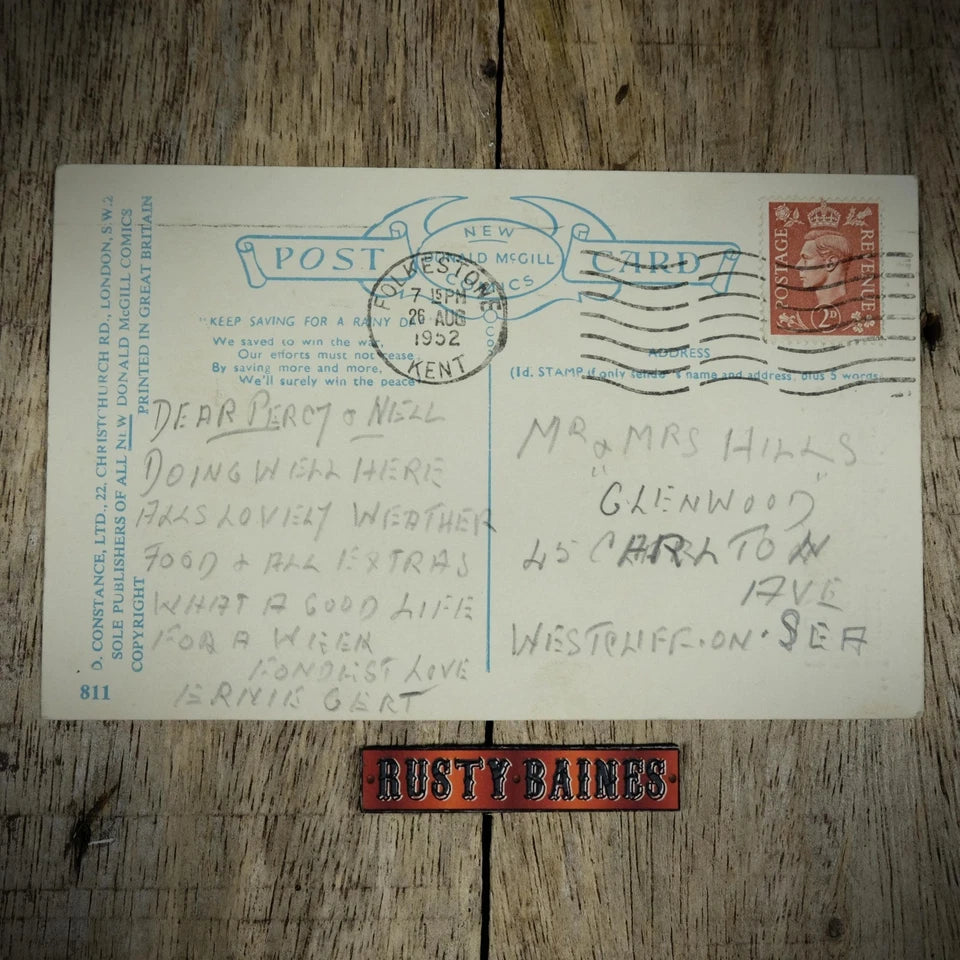 D. CONSTANCE, LTD., 22, CHRISTCHURCH RD., LONDON, S.W.2
SOLE PUBLISHERS OF ALL NEW DONALD McGILL COMICS
COPYRIGHT PRINTED IN GREAT BRITAIN
811
POST CARD
NEW
DONALD McGILL
COMICS
FOLKESTONE
7 15PM
26 AUG
1952
KENT
POSTAGE REVENUE
2D
"KEEP SAVING FOR A RAINY D
We saved to win the war,
Our efforts must not cease,
By saving more and more,
We'll surely win the peace
ADDRESS
(1d. STAMP if only sender's name and address, plus 5 words.
DEAR PERCY & NELL
DOING WELL HERE
ALLS LOVELY WEATHER
FOOD & ALL EXTRAS
WHAT A GOOD LIFE
FOR A WEEK
FONDEST LOVE
ERNIE GERT
MR & MRS HILLS
"GLENWOOD"
45 CARLTON
AVE
WESTCLIFF-ON-SEA
RUSTY·BAINES